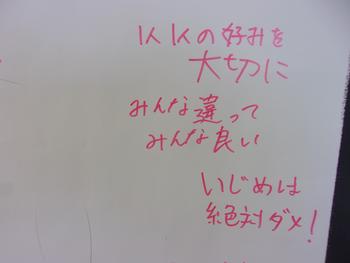 人人の好みを
大切に
みんな違って
みんな良い
いじめは
絶対ダメ!